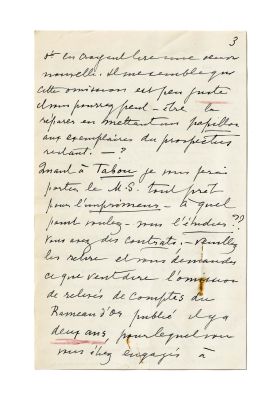 3
en croyant lire une œuvre
nouvelle. Il me semble que
cette omission est peu juste
et vous pourrez peut-être la
réparer en mettant un papillon
aux exemplaires du prospectus
restant. — ?
Quant à Tabou je vous ferai
porter le M.S. tout prêt
pour l'imprimeur — à quel
point voulez-vous l'étudier ??
Vous avez des contrats. — veuillez
les relire et vous demander
ce que veut dire l'omission
de relevés de comptes du
Rameau d'or publié il y a
deux ans, pour lequel vous
vous étiez engagés à